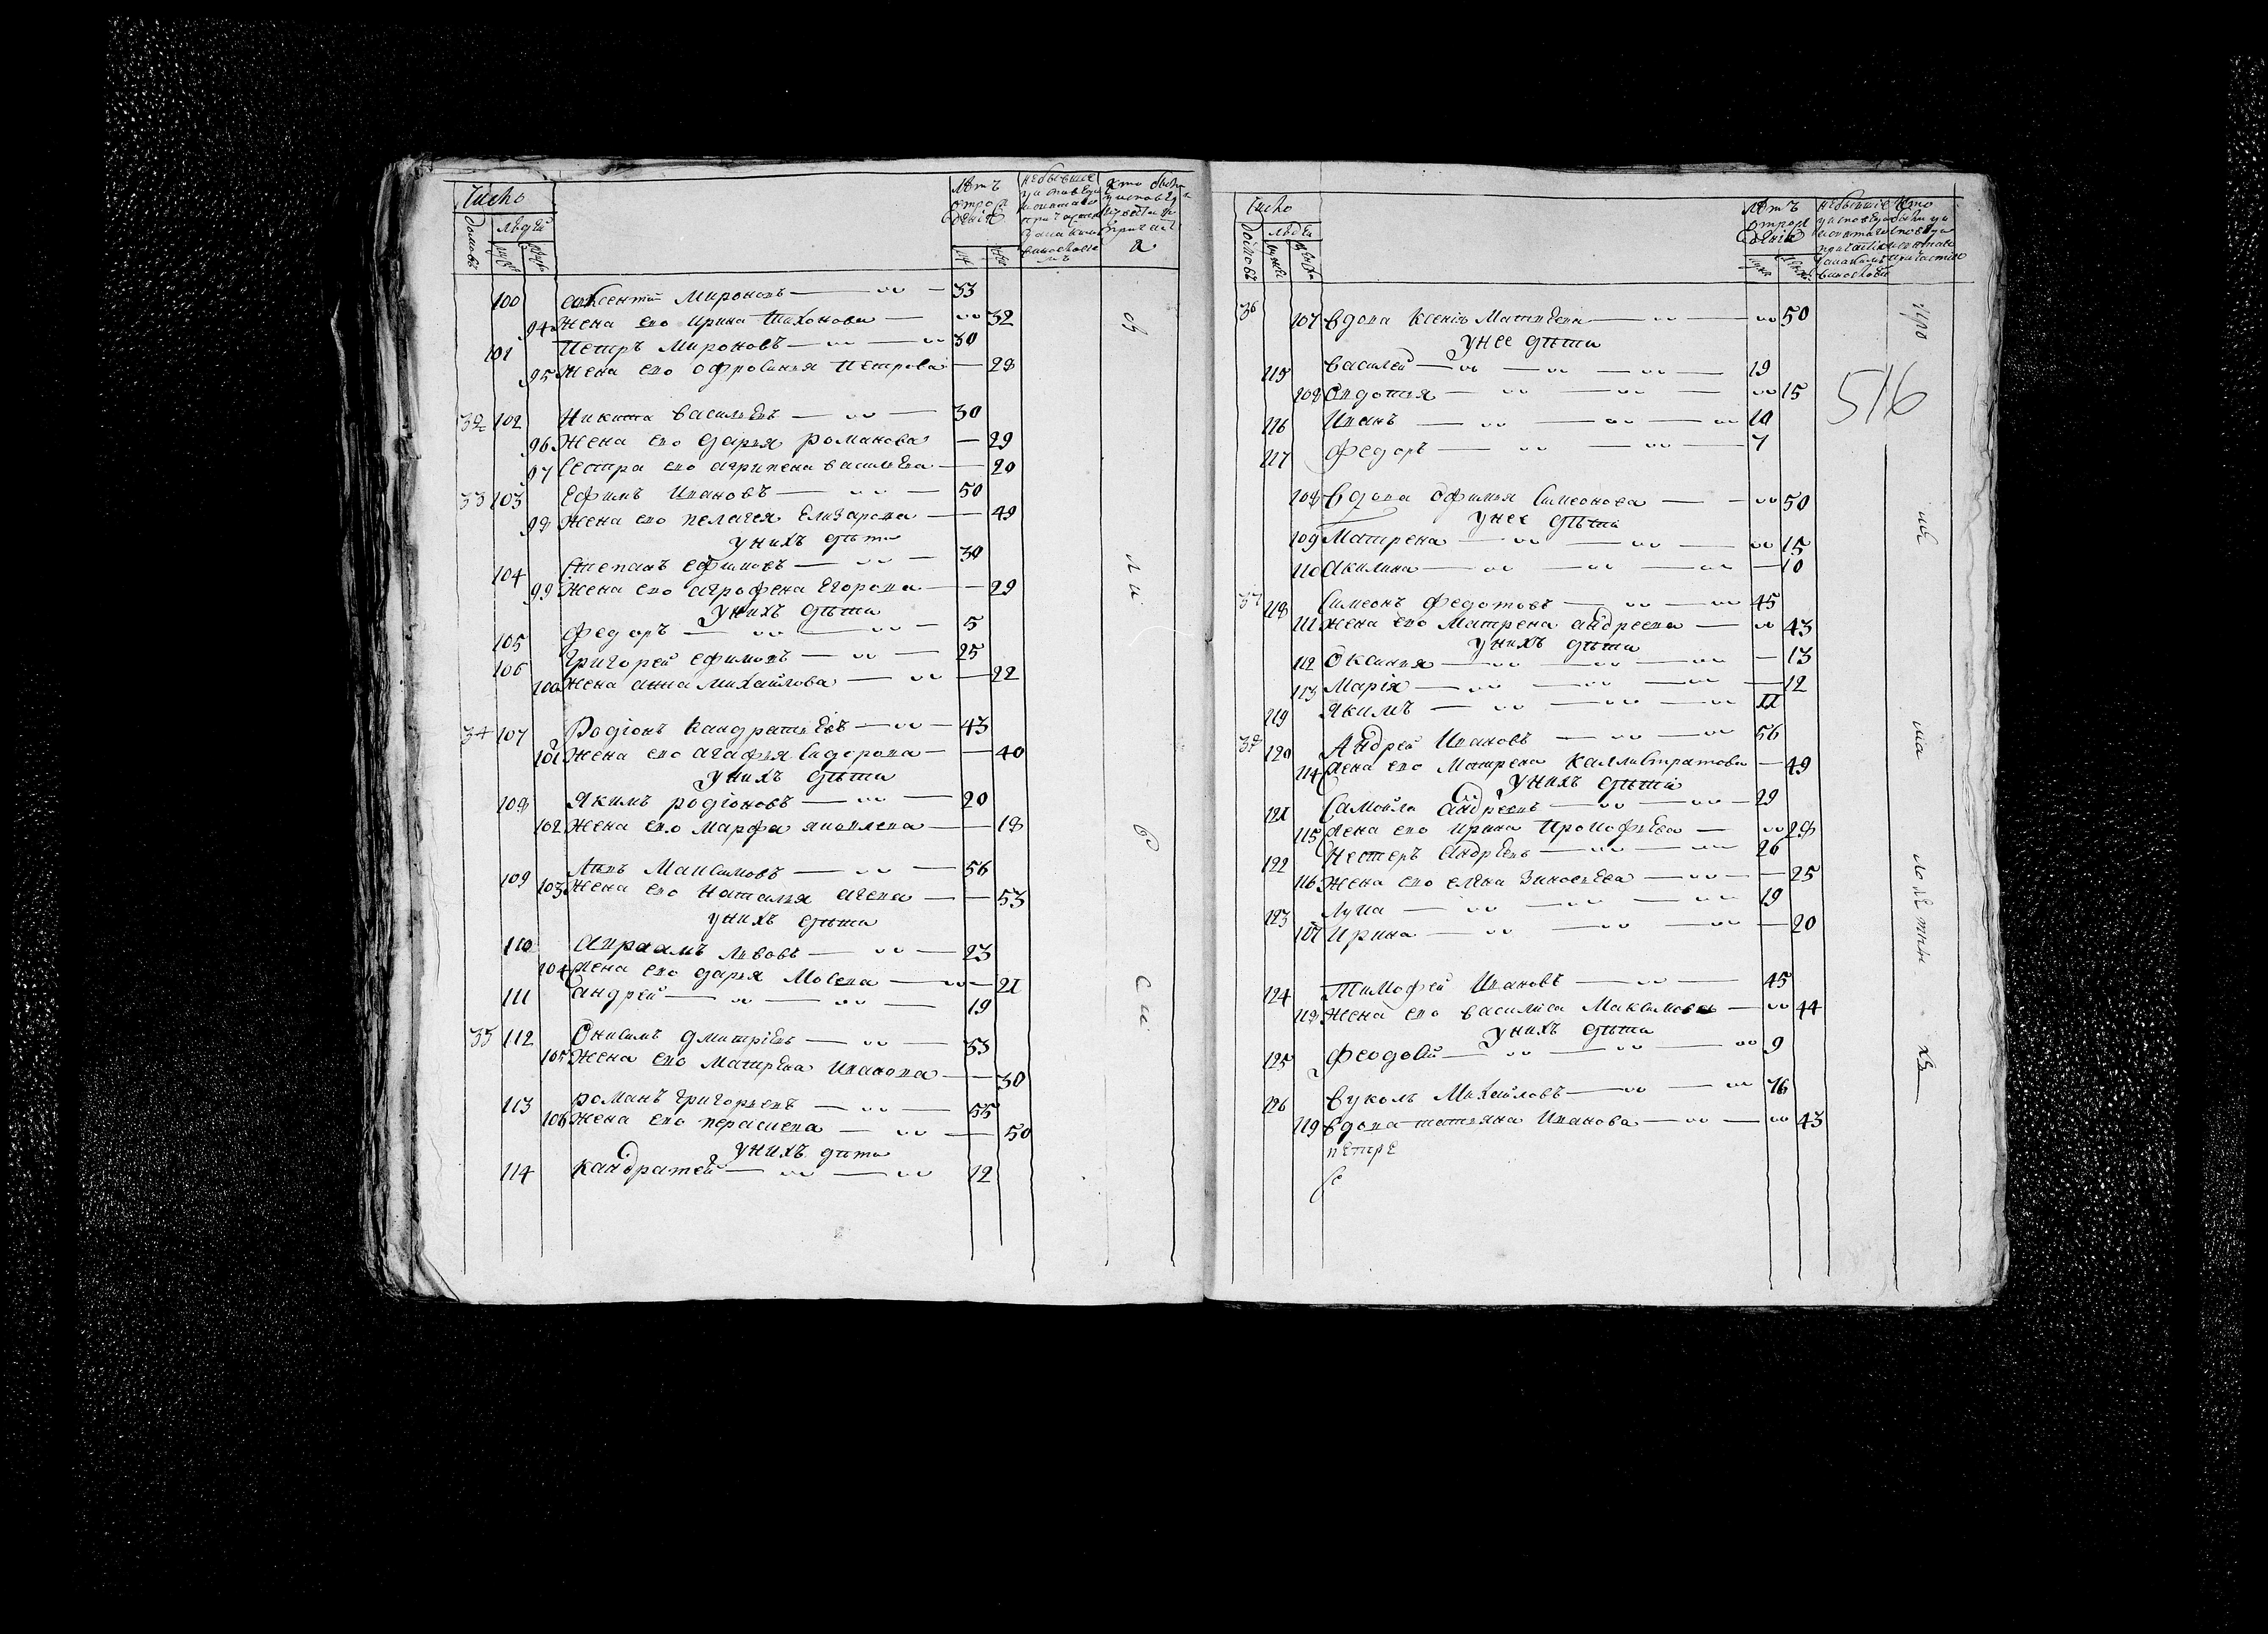 Число
домовъ людей
Лѣтъ отрожденія
100 Авксентiй Мироновъ 33
94 Жена ево Ирина Тихонова 32
101 Петръ Мироновъ 30
95 Жена ево Офросинья Петрова 28
32 102 Никита Васильевъ 30
96 Жена ево Дарья Романова 29
97 Сестра ево Агрипена Васильева 20
33 103 Ефимъ Ивановъ 50
98 Жена ево Пелагея Елизарова 49
у нихъ дѣти
104 Степанъ Ефимовъ 30
99 Жена ево Агрофена Егорова 29
у нихъ дѣти
105 Федоръ 5
106 Григорей Ефимовъ 25
100 Жена Анна Михайлова 22
34 107 Родіонъ Кандратьевъ 43
101 Жена ево Агафья Сидорова 40
у нихъ дѣти
108 Якимъ Родіоновъ 20
102 Жена ево Марфа Яковлева 18
109 Левъ Максимовъ 56
103 Жена ево Наталья Агеева 53
у нихъ дѣти
110 Авраамъ Львовъ 23
104 Жена ево Дарья Мосева 21
111 Андрей 19
35 112 Онисимъ Дмитріевъ 33
105 Жена ево Матрена Иванова 30
113 Романъ Григорьевъ 55
106 Жена ево Пераскева 50
у нихъ дети
114 Кандратей 12
Число
домовъ людей
Лѣтъ отрожденія
516
36 107 Вдова Ксенія Матвѣева 50
у нее дѣти
115 Василей 19
108 Овдотья 15
116 Иванъ 10
117 Федоръ 7
108 Вдова Офимья Симеонова 50
у нее дѣти
109 Матрена 15
110 Акилина 10
37 118 Симеонъ Федотовъ 45
111 Жена ево Матрена Андреева 43
у нихъ дѣти
112 Оксинья 13
113 Марія 12
119 Якимъ 11
38 120 Андрей Ивановъ 56
114 Жена ево Матрена Каллистратова 49
у нихъ дѣти
121 Самойла Андреевъ 29
115 Жена ево Ирина Прокофьева 28
122 Нестеръ Андрѣевъ 26
116 Жена ево Елена Зиновьева 25
123 Лука 19
117 Ирина 20
124 Тимофей Ивановъ 45
118 Жена ево Василиса Максимова 44
у нихъ дѣти
125 Феодосiй 9
126 Вуколъ Михайловъ 76
119 Вдова Татьяна Иванова 43